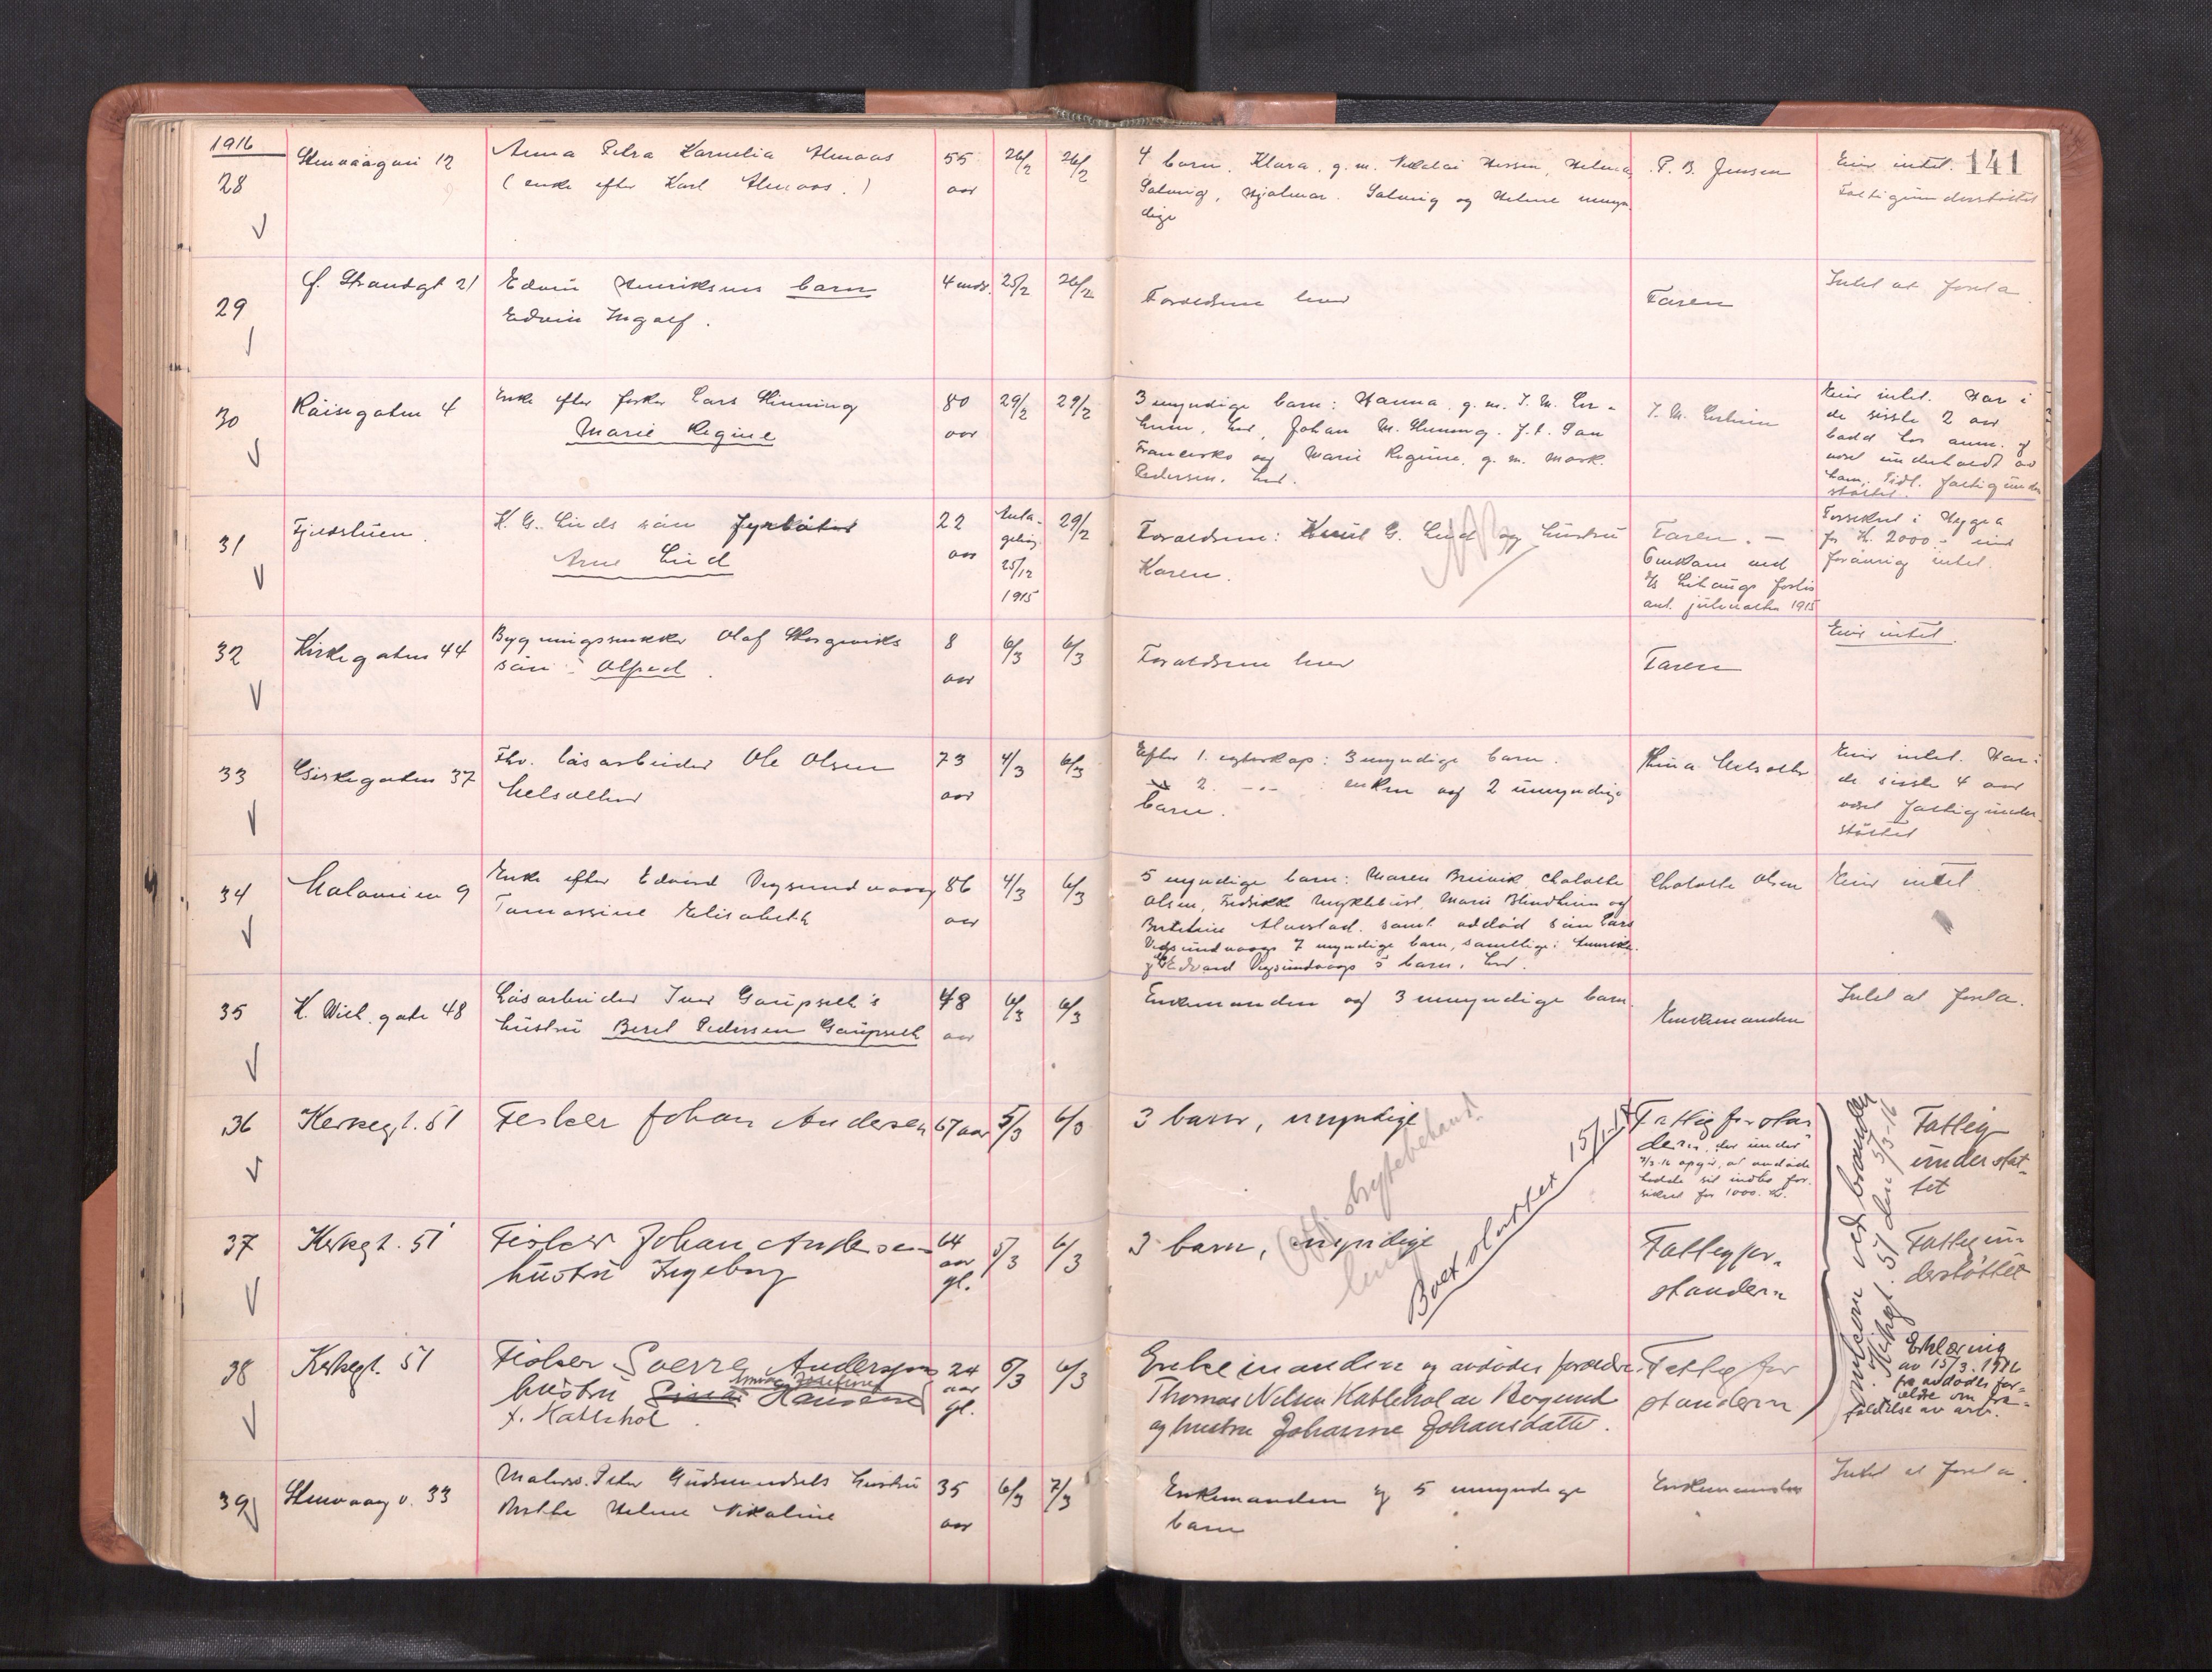 1916
141
28
Stenvaagvei 12
Anna Petra Kornelia Stenvaas
(enke efter Karl Stenvaas.)
55
aar
26/2
26/2
4 barn. Klara, g. m. Nikolai Hessen, Helma,
Solveig, Hjalmar. Solveig og Helma umyn-
dige
P. B. Jensen
Eier intet.
Fattigunderstöttet
29
f. Strandgt 21
Edvin Henriksens barn
Edvin Ingolf.
4 mdr.
25/2
26/2
Forældrene lever
Faren
Intet at foreta.
30
Räisegaten 4
Enke efter fisker Lars Flemming
Marie Regine
80
aar
29/2
29/2
3 myndige barn: Hanna, g. m. J. M.
her, Johan M. Flemming. f.t. San
Francisko og Marie Regine, g. m. Mark.
Pedersen, her.
J. M.
Eier intet. Har i
de sisste 2 aar
bodd hos anm. og
været underholdt av
ham. Tidl. fattigunder
støttet.
31
Fjeldstuen.
K. G. Linds sön fyrbøter
Arne Lind
22
aar
Anta-
gelig
25/12
1915
29/2
Forældrene: Knut G. Lind og hustru
Karen.
Faren. —
Omkom med
s/s forlis
ant. julenatten 1915
Forsikret i Hygea
for Kr. 2000.-
forövrig intet.
32
Kirkegaten 44
Bygningssnekker Olaf Skorgeviks
sön: Alfred.
8
aar
6/3
6/3
Forældrene lever
Faren
Eier intet.
33
Giskegaten 37
Fhv. løsarbeider Ole Olsen
Melsæther
73
aar
4/3
6/3
Efter 1. egteskap: 3 myndige barn.
2. -"- : enken og 2 umyndige
barn.
Stina Melsæther
Eier intet. Har i
de sisste 4 aar
været fattigunder-
støttet
34
Kolonien 9
Enke efter Edvard Vegsundvaag
Tomassine Elisabeth
86
aar
4/3
6/3
5 myndige barn: Maren Breivik, Chalotte
Olsen, Fredrikke Myklebust, Marie Blindheim og
Bertine Aarstad. samt avdöd sön Lars
Vegsundvaags 7 myndige barn, samtlige i Amerika.
Edvard Vegsundvaags 5 barn, her.
Chalotte Olsen
Eier intet.
35
K. Wilh. gate 48
Løsarbeider Iver Gaupseth's
hustru Beret Pedersen Gaupseth
48
aar
6/3
6/3
Enkemanden og 3 umyndige barn.
Enkemanden
Intet at foreta.
36
Kirkegt. 51
Fisker Johan Andersen
67 aar
5/3
6/3
3 barn, myndige
Fattigforstan
deren, der under
7/3.16 opgir, at avdøde
hadde sit indbo for-
sikret for 1000. kr.
Fattig
understøt-
tet
Off. skiftebehand-
ling
Boet sluttet 15/1-18
omkom ved branden
i Kirkegt. 51 den 5/3-16
37
Kirkegt. 51
Fisker Johan Andersens
hustru Ingeborg
64
aar
gl.
5/3
6/3
3 barn, myndige
Fattigfor-
standeren
Fattigun-
derstøttet
38
Kirkegt. 51
Fisker Sverre Andersens
hustru Josefine Hansen
f. Katlehol.
24
aar
gl.
5/3
6/3
Enkemanden og avdødes forældre
Thomas Nilsen Katlehol av Borgund
og hustru Johanne Johansdatter.
Fattigfor
standeren
Erklæring
av 15/3.1916
fra avdødes for-
ældre om fra-
faldelse av arv.
39
Stenvaagv. 33
Malersv. Peter Gudmundsets hustru
Helene Nikoline
35
aar
6/3
7/3
Enkemanden og 5 umyndige
barn
Enkemanden
Intet at foreta.